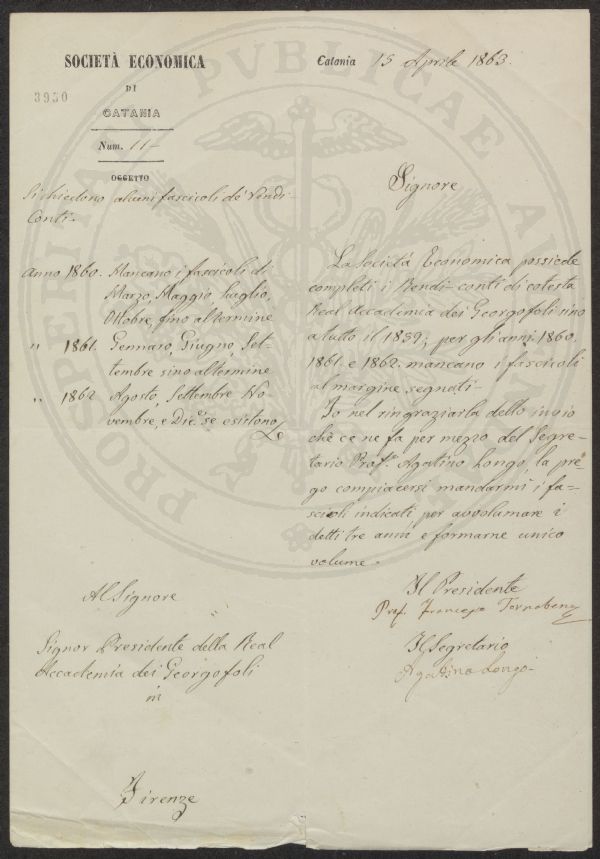 SOCIETÀ ECONOMICA
DI
CATANIA
3950
Num. 117
OGGETTO
Si chiedono alcuni fascicoli de' Rendi-
Conti.
Anno 1860. Mancano i fascicoli di
Marzo, Maggio, Luglio,
Ottobre, fino al termine
" 1861. Gennaro, Giugno, Set-
tembre sino al termine
" 1862 Agosto, Settembre No-
vembre, e Dic.e se esistono
Al Signore
Signor Presidente della Real
Accademia dei Georgofoli
in
Firenze
Catania 15 Aprile 1863.
Signore
La Società Economica possiede
completi i Rendi-conti di cotesta
Real Accademia dei Georgofoli sino
a tutto il 1859; per gli anni 1860.
1861. e 1862. mancano i fascicoli
al margine segnati-
Io nel ringraziarla dello invio
che ce ne fa per mezzo del Segre-
tario Prof.e Agatino Longo, la pre-
go compiacersi mandarmi i fa-
scicoli indicati per avvolumare i
detti tre anni e formarne unico
volume.
Il Presidente
Prof. Francesco Tornabene
Il Segretario
Agatino Longo
PROSPERITATI PUBLICAE AUGENDAE